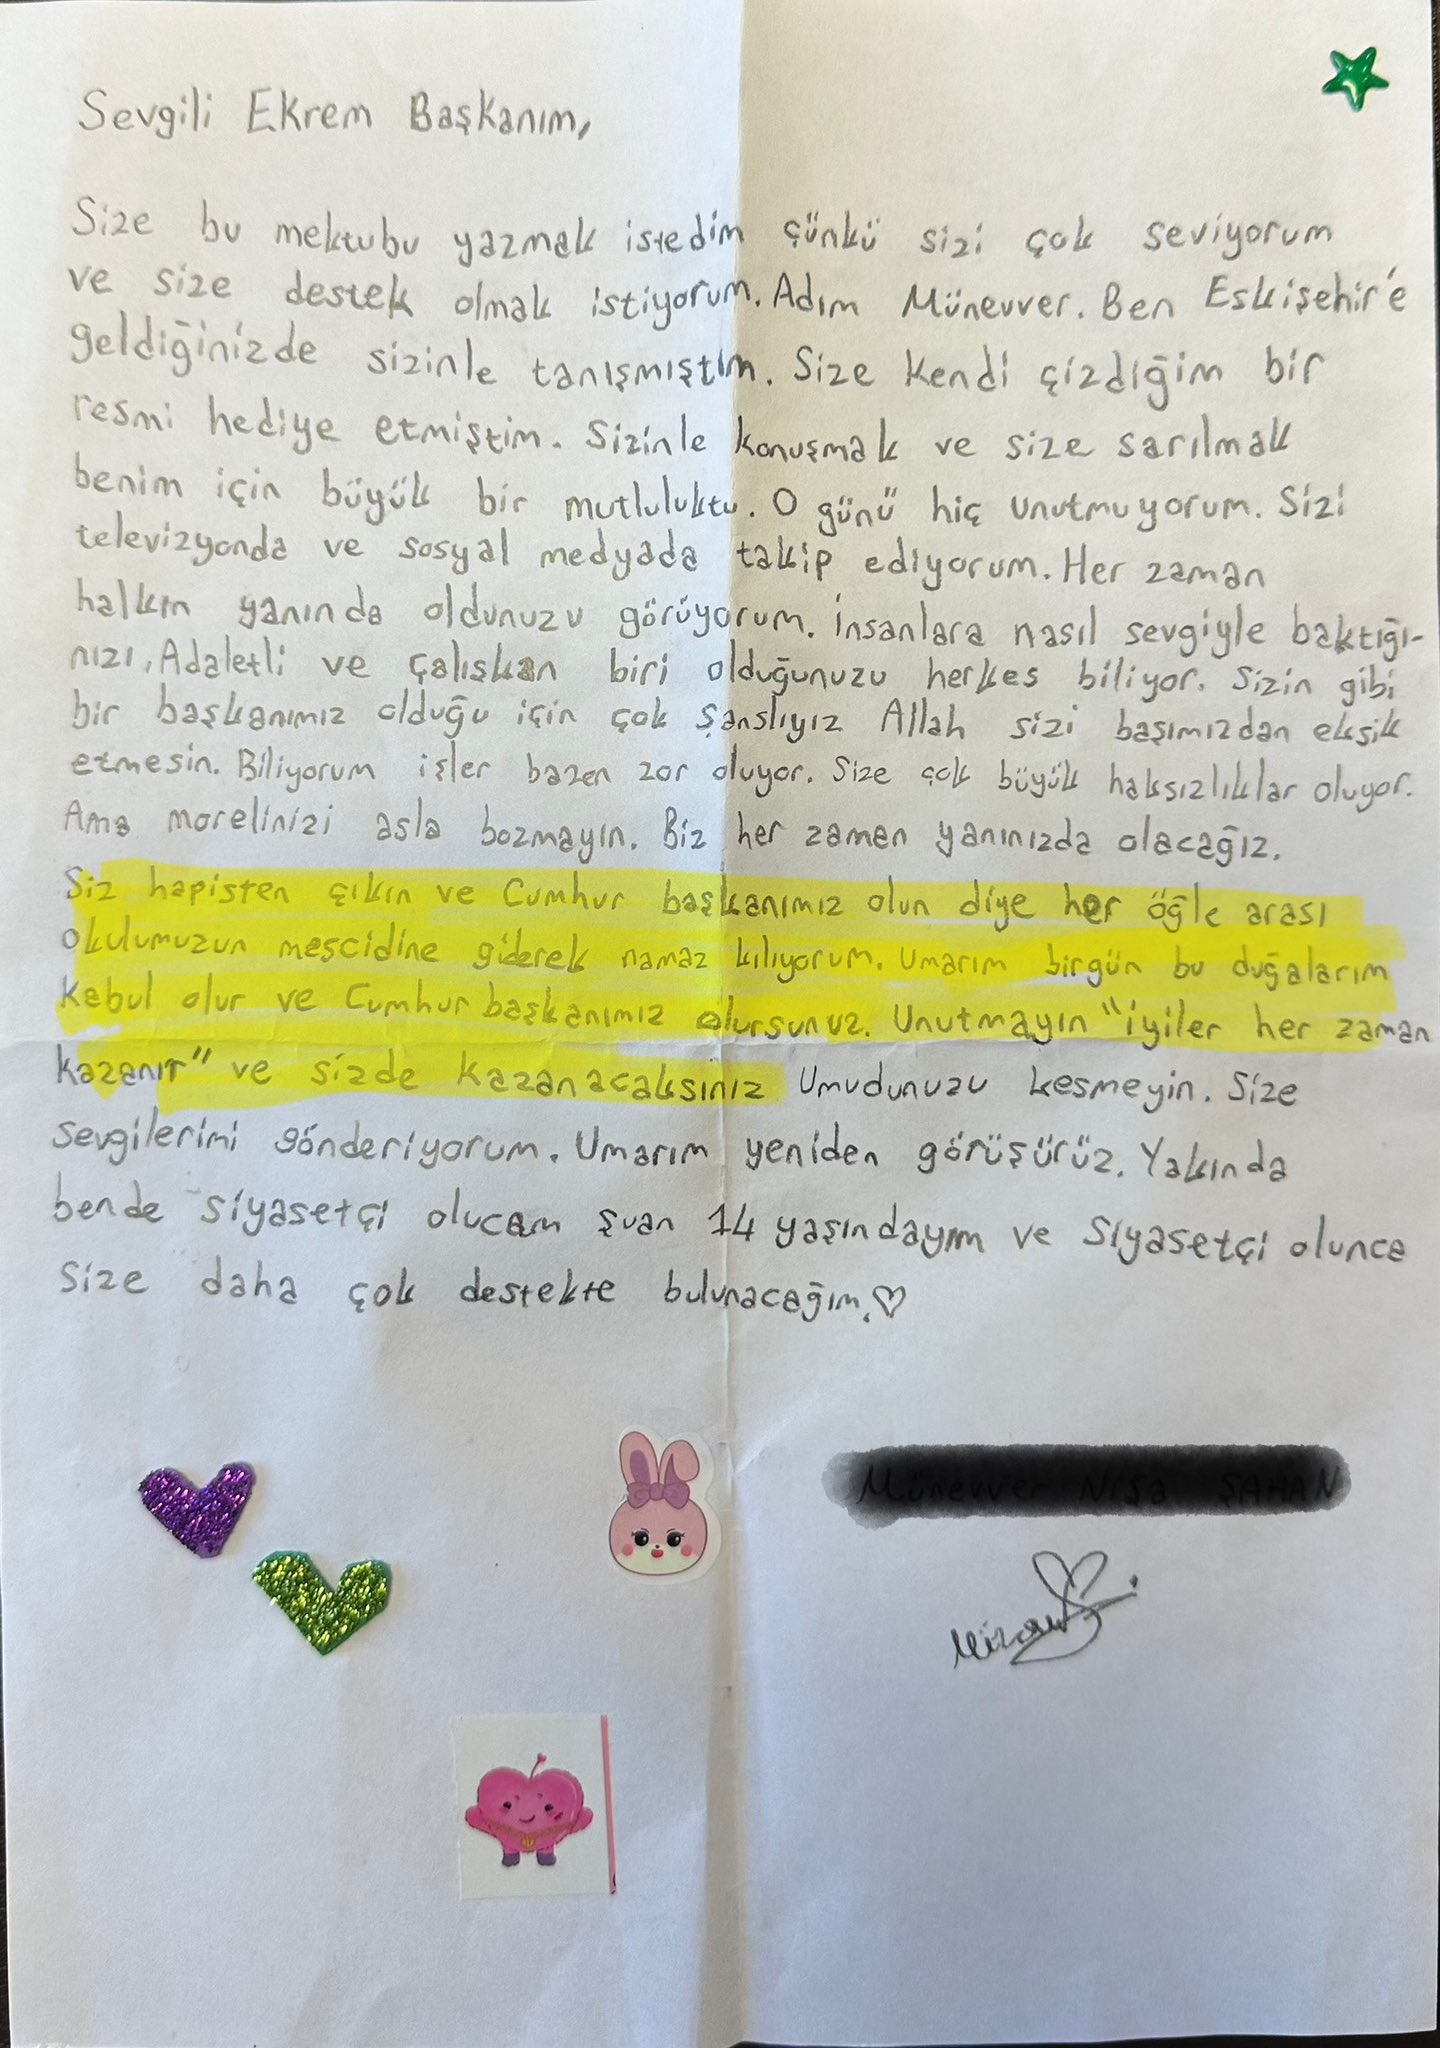 Sevgili Ekrem Başkanım,
Size bu mektubu yazmak istedim çünkü sizi çok seviyorum
ve size destek olmak istiyorum. Adım Münevver. Ben Eskişehir'e
geldiğinizde sizinle tanışmıştım. Size kendi çizdiğim bir
resmi hediye etmiştim. Sizinle konuşmak ve size sarılmak
benim için büyük bir mutluluktu. O günü hiç unutmuyorum. Sizi
televizyonda ve sosyal medyada takip ediyorum. Her zaman
halkın yanında oldunuzu görüyorum. İnsanlara nasıl sevgiyle baktığı-
nızı. Adaletli ve çalışkan biri olduğunuzu herkes biliyor. Sizin gibi
bir başkanımız olduğu için çok şanslıyız Allah sizi başımızdan eksik
etmesin. Biliyorum işler bazen zor oluyor. Size çok büyük haksızlıklar oluyor.
Ama morelinizi asla bozmayın. Biz her zaman yanınızda olacağız.
Siz hapisten çıkın ve Cumhur başkanımız olun diye her öğle arası
okulumuzun mescidine giderek namaz kılıyorum. Umarım birgün bu duğalarım
kabul olur ve Cumhur başkanımız olursunuz. Unutmayın "iyiler her zaman
kazanır" ve sizde kazanacaksınız Umudunuzu kesmeyin. Size
sevgilerimi gönderiyorum. Umarım yeniden görüşürüz. Yakında
bende siyasetçi olucam şuan 14 yaşındayım ve siyasetçi olunca
size daha çok destekte bulunacağım.